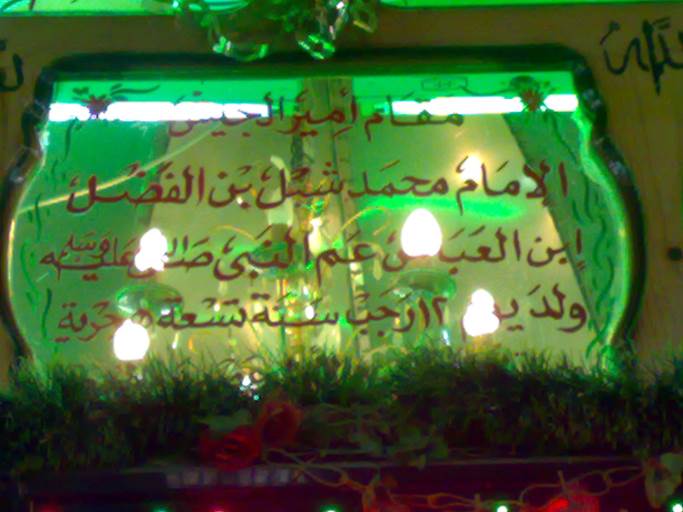 مقام أمير الجيش
الإمام محمد شبل بن الفضل
إبن العباس عم النبى صلى الله عليه وسلم
ولد يوم ١٢ رجب سنة تسعة هجرية
الله